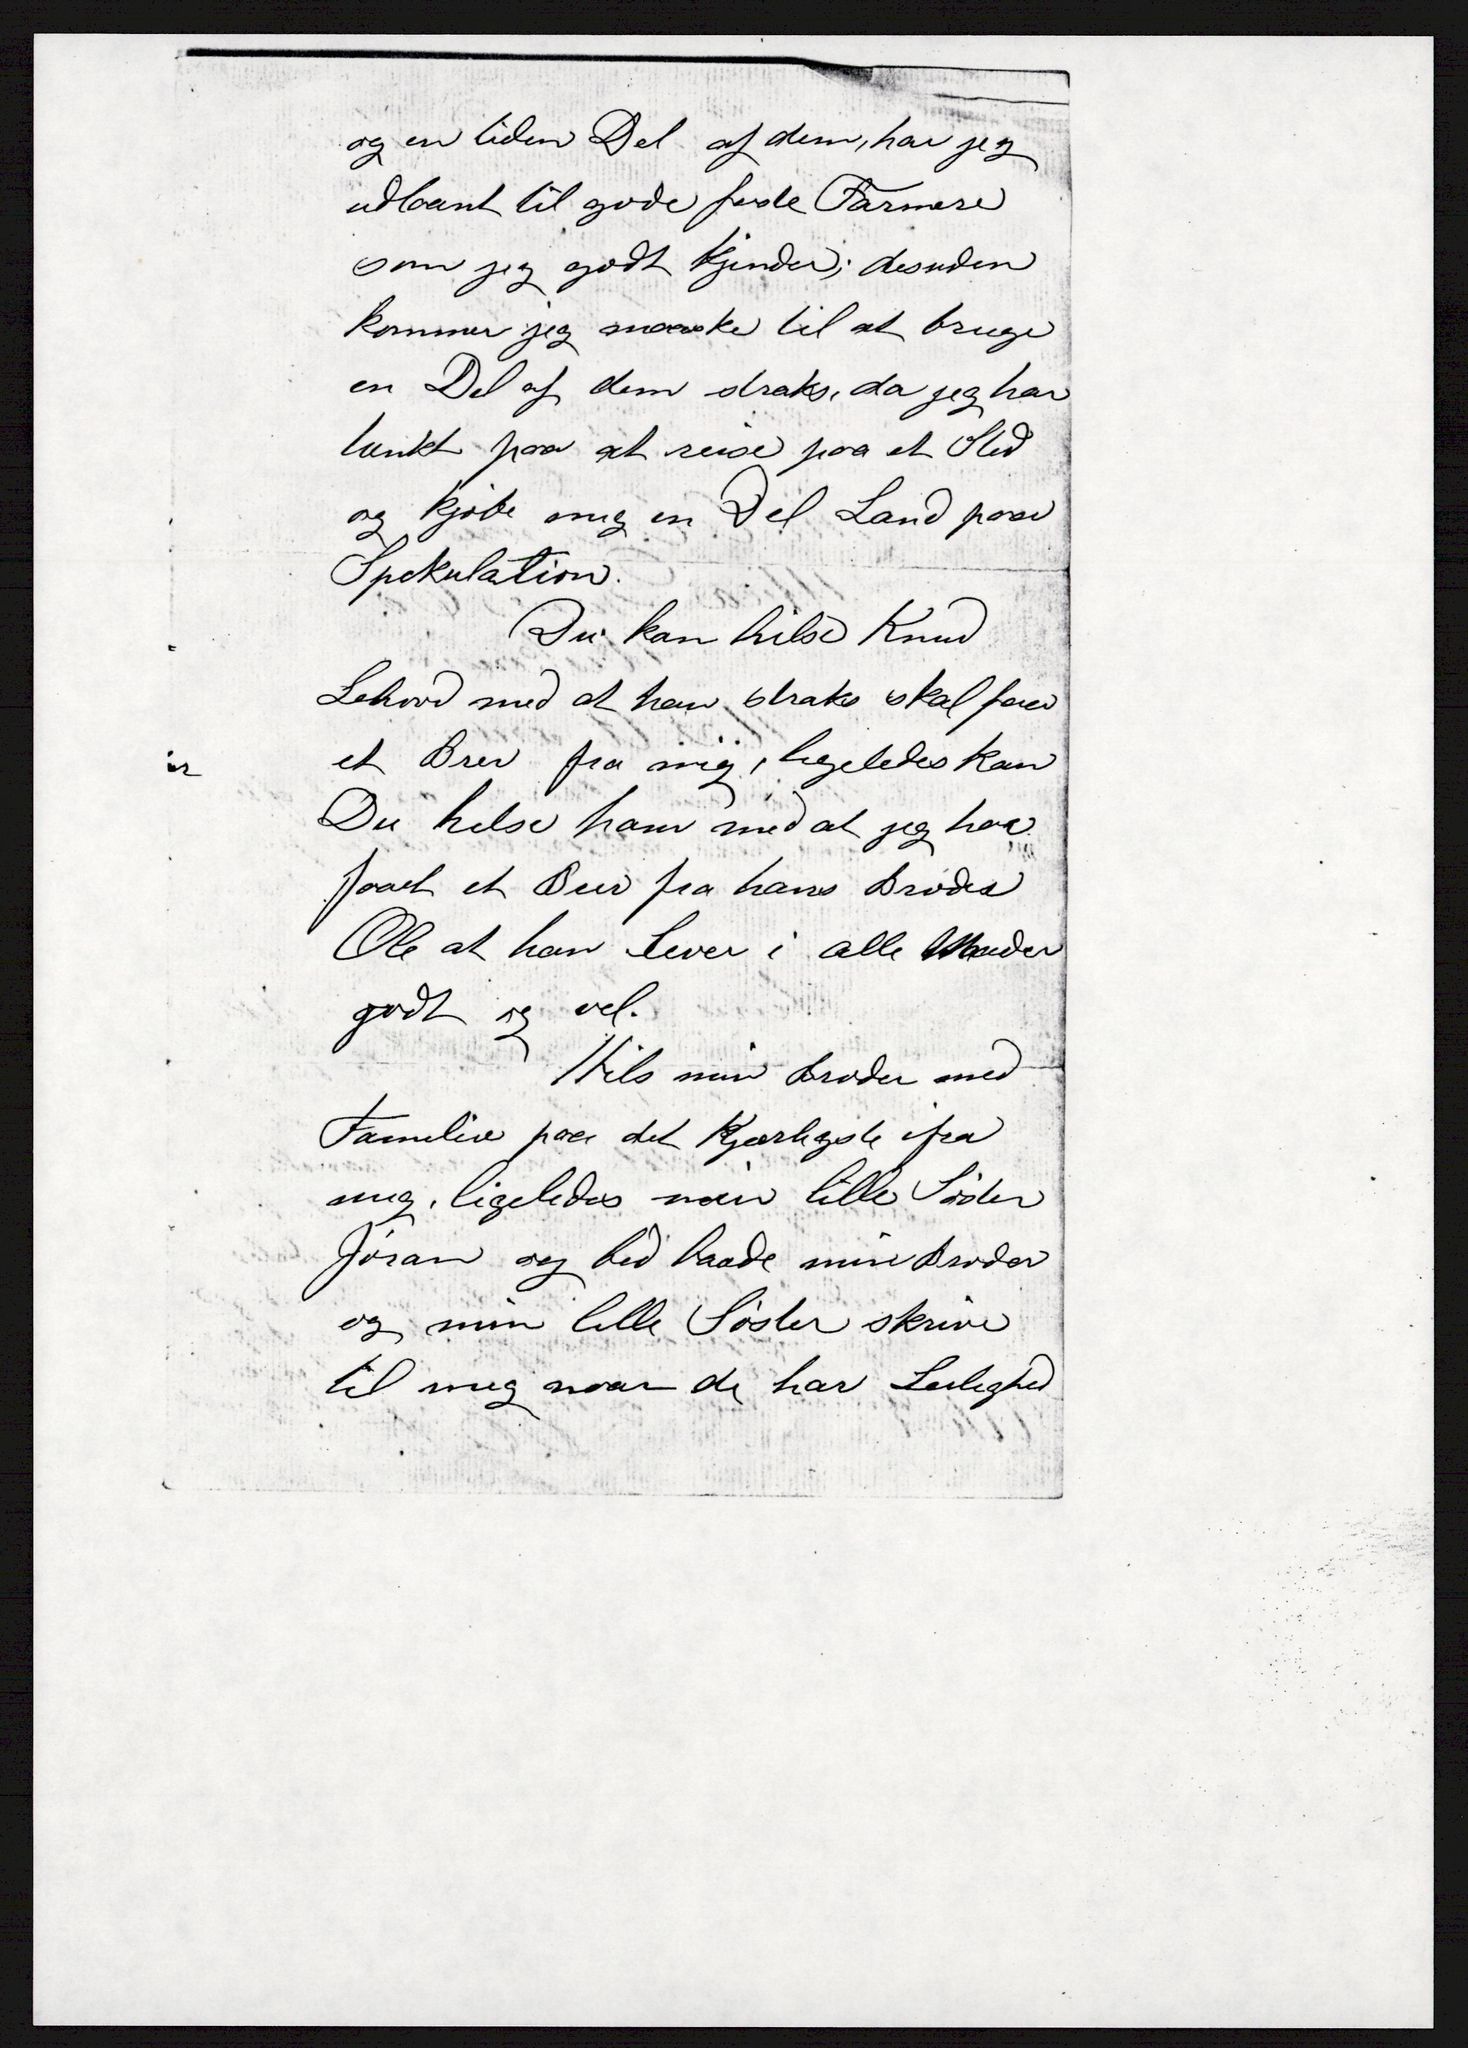 og en liden Del af dem, har jeg
udlaant til gode Farmere
som jeg godt kjender; desuden
kommer jeg maaske til at bruge
en Del af dem straks, da jeg har
tænkt paa at reise paa et Sted
og kjøbe mig en Del Land paa
Spekulation.
Du kan hilse Knud
Lehovd med at han straks skal faa
et Brev fra mig, ligeledes kan
Du hilse ham med at jeg har
faaet et Brev fra hans Broder
Ole at han lever i alle Maader
godt og vel.
Hils min Broder med
Familie paa det Kjærligste ifra
mig, ligeledes min lille Søster
Jöran og bed baade min Broder
og min lille Søster skrive
til mig naar de har Leilighed
er